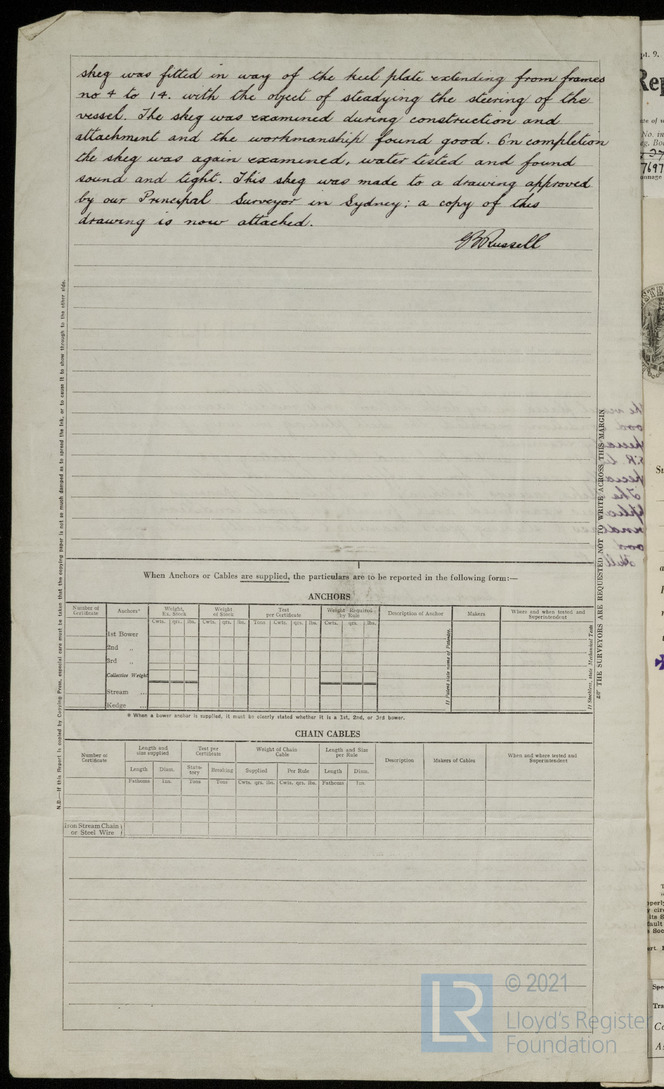 skeg was fitted in way of the keel plate extending from frames
no 4 to 14. with the object of steadying the steering of the
vessel. The skeg was examined during construction and
attachment and the workmanship found good. On completion
the skeg was again examined, water tested and found
sound and tight. This skeg was made to a drawing approved
by our Principal Surveyor in Sydney; a copy of this
drawing is now attached.
GBRussell
N.B.—If this Report is copied by Copying Press, especial care must be taken that the copying paper is not so much damped as to spread the ink, or to cause it to show through to the other side.
THE SURVEYORS ARE REQUESTED NOT TO WRITE ACROSS THIS MARGIN
When Anchors or Cables are supplied, the particulars are to be reported in the following form:—
ANCHORS
Number of Certificate Anchors* Weight, Ex. Stock Weight of Stock Test per Certificate Weight Required by Rule Description of Anchor Makers Where and when tested and Superintendent
Cwts. qrs. lbs. Cwts. qrs. lbs. Tons Cwts. qrs. lbs. Cwts. qrs. lbs.
1st Bower
2nd „
3rd „
Collective Weight
Stream
Kedge
If Patent state name of Patentee.
If Stockless, state Mechanical Tests
* When a bower anchor is supplied, it must be clearly stated whether it is a 1st, 2nd, or 3rd bower.
CHAIN CABLES
Number of Certificate Length and size supplied Test per Certificate Weight of Chain Cable Length and Size per Rule Description Makers of Cables Where and when tested and Superintendent
Length Diam. Statutory Breaking Supplied Per Rule Length Diam.
Fathoms Ins. Tons Tons Cwts. qrs. lbs. Cwts. qrs. lbs. Fathoms Ins.
Iron Stream Chain
or Steel Wire
LR
© 2021
Lloyd's Register
Foundation